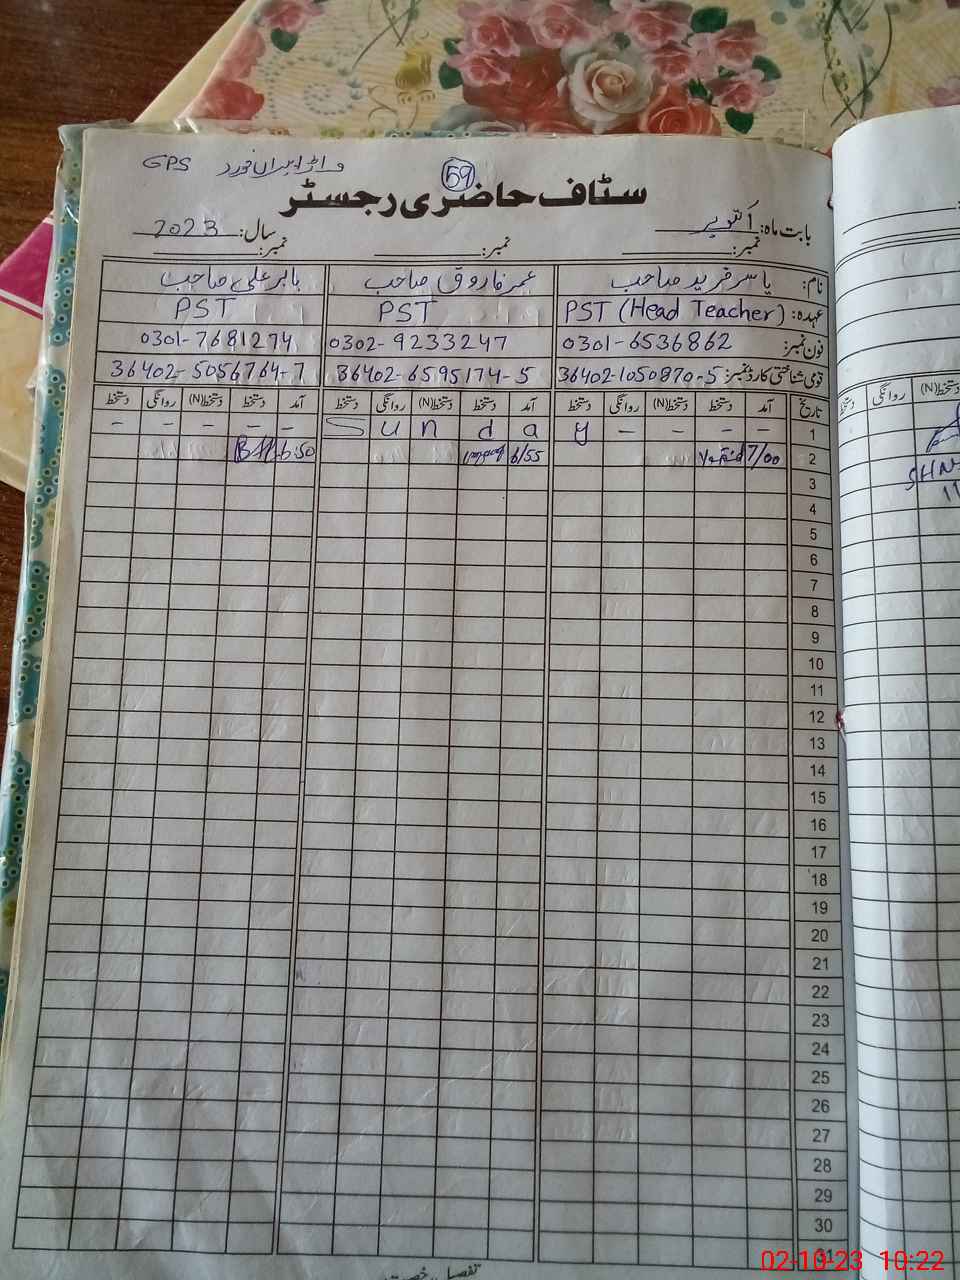 GPS
59
سٹاف حاضری رجسٹر
بابت ماہ: اکتوبر سال: 2023
نمبر: نمبر: نمبر:
نام: یاسر فرید صاحب عمر فاروق صاحب بابر علی صاحب
عہدہ: PST (Head Teacher) PST PST
فون نمبر: 0301-6536862 0302-9233247 0301-7681274
قومی شناختی کارڈ نمبر: 36402-1050870-5 36402-6595174-5 36402-5056764-7
تاریخ آمد دستخط دستخط(N) روانگی دستخط آمد دستخط دستخط(N) روانگی دستخط آمد دستخط دستخط(N) روانگی دستخط
1 - - - - y a d n u S - - - - -
2 7/00 6/55 6:50
3
4
5
6
7
8
9
10
11
12
13
14
15
16
17
18
19
20
21
22
23
24
25
26
27
28
29
30
31
دستخط(N) روانگی دستخط
02-10-23 10:22